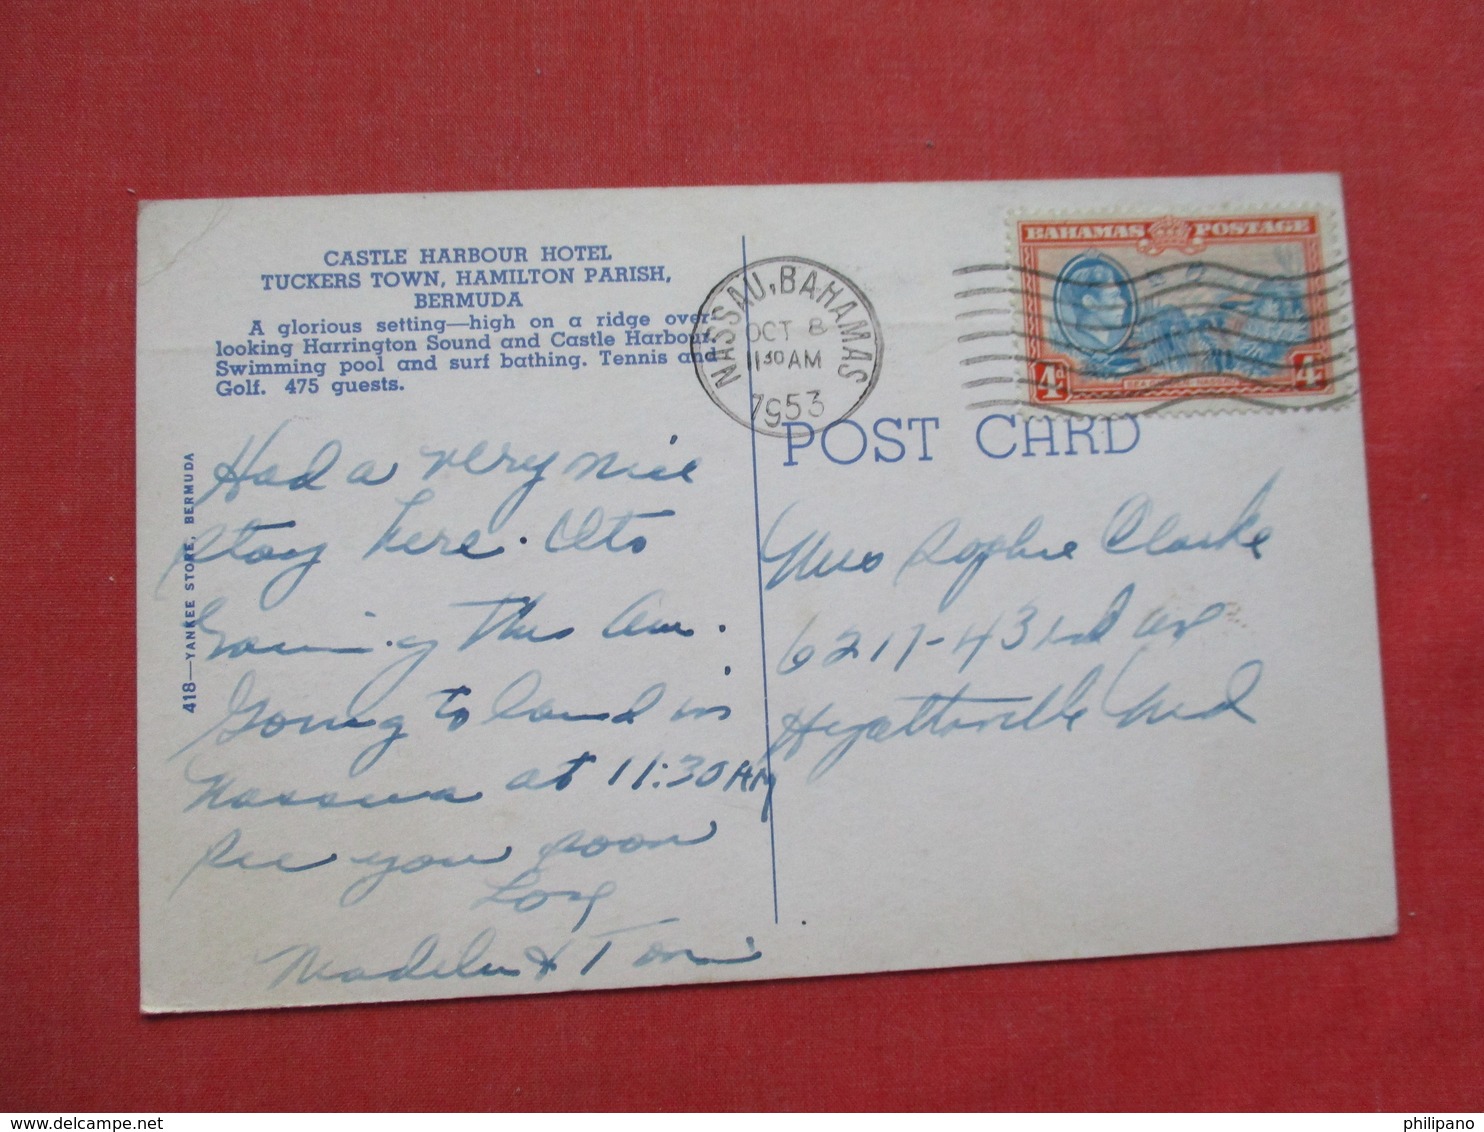 CASTLE HARBOUR HOTEL
TUCKERS TOWN, HAMILTON PARISH,
BERMUDA
A glorious setting—high on a ridge over-
looking Harrington Sound and Castle Harbour.
Swimming pool and surf bathing. Tennis and
Golf. 475 guests.
418—YANKEE STORE, BERMUDA
Had a very nice
stay here. Its
raining this am.
Going to land in
Nassau at 11:30 AM
see you soon
Love
Madeline & Tom
NASSAU, BAHAMAS
OCT 8
11 30 AM
1953
BAHAMAS POSTAGE
4d
4d
POST CARD
Mrs Sophie Clarke
6217-43rd av
Hyattsville Md
philipano
delcampe.net